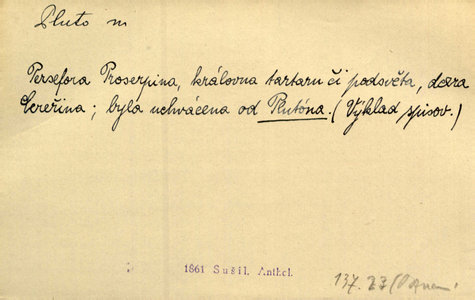 Pluto m
Persefora Proserpina, královna tartaru či podsvěta, dcera
Cereřina; byla uchvácena od Plutóna. (Výklad spisov.)
1861 Sušil. Anthol.
137. 23